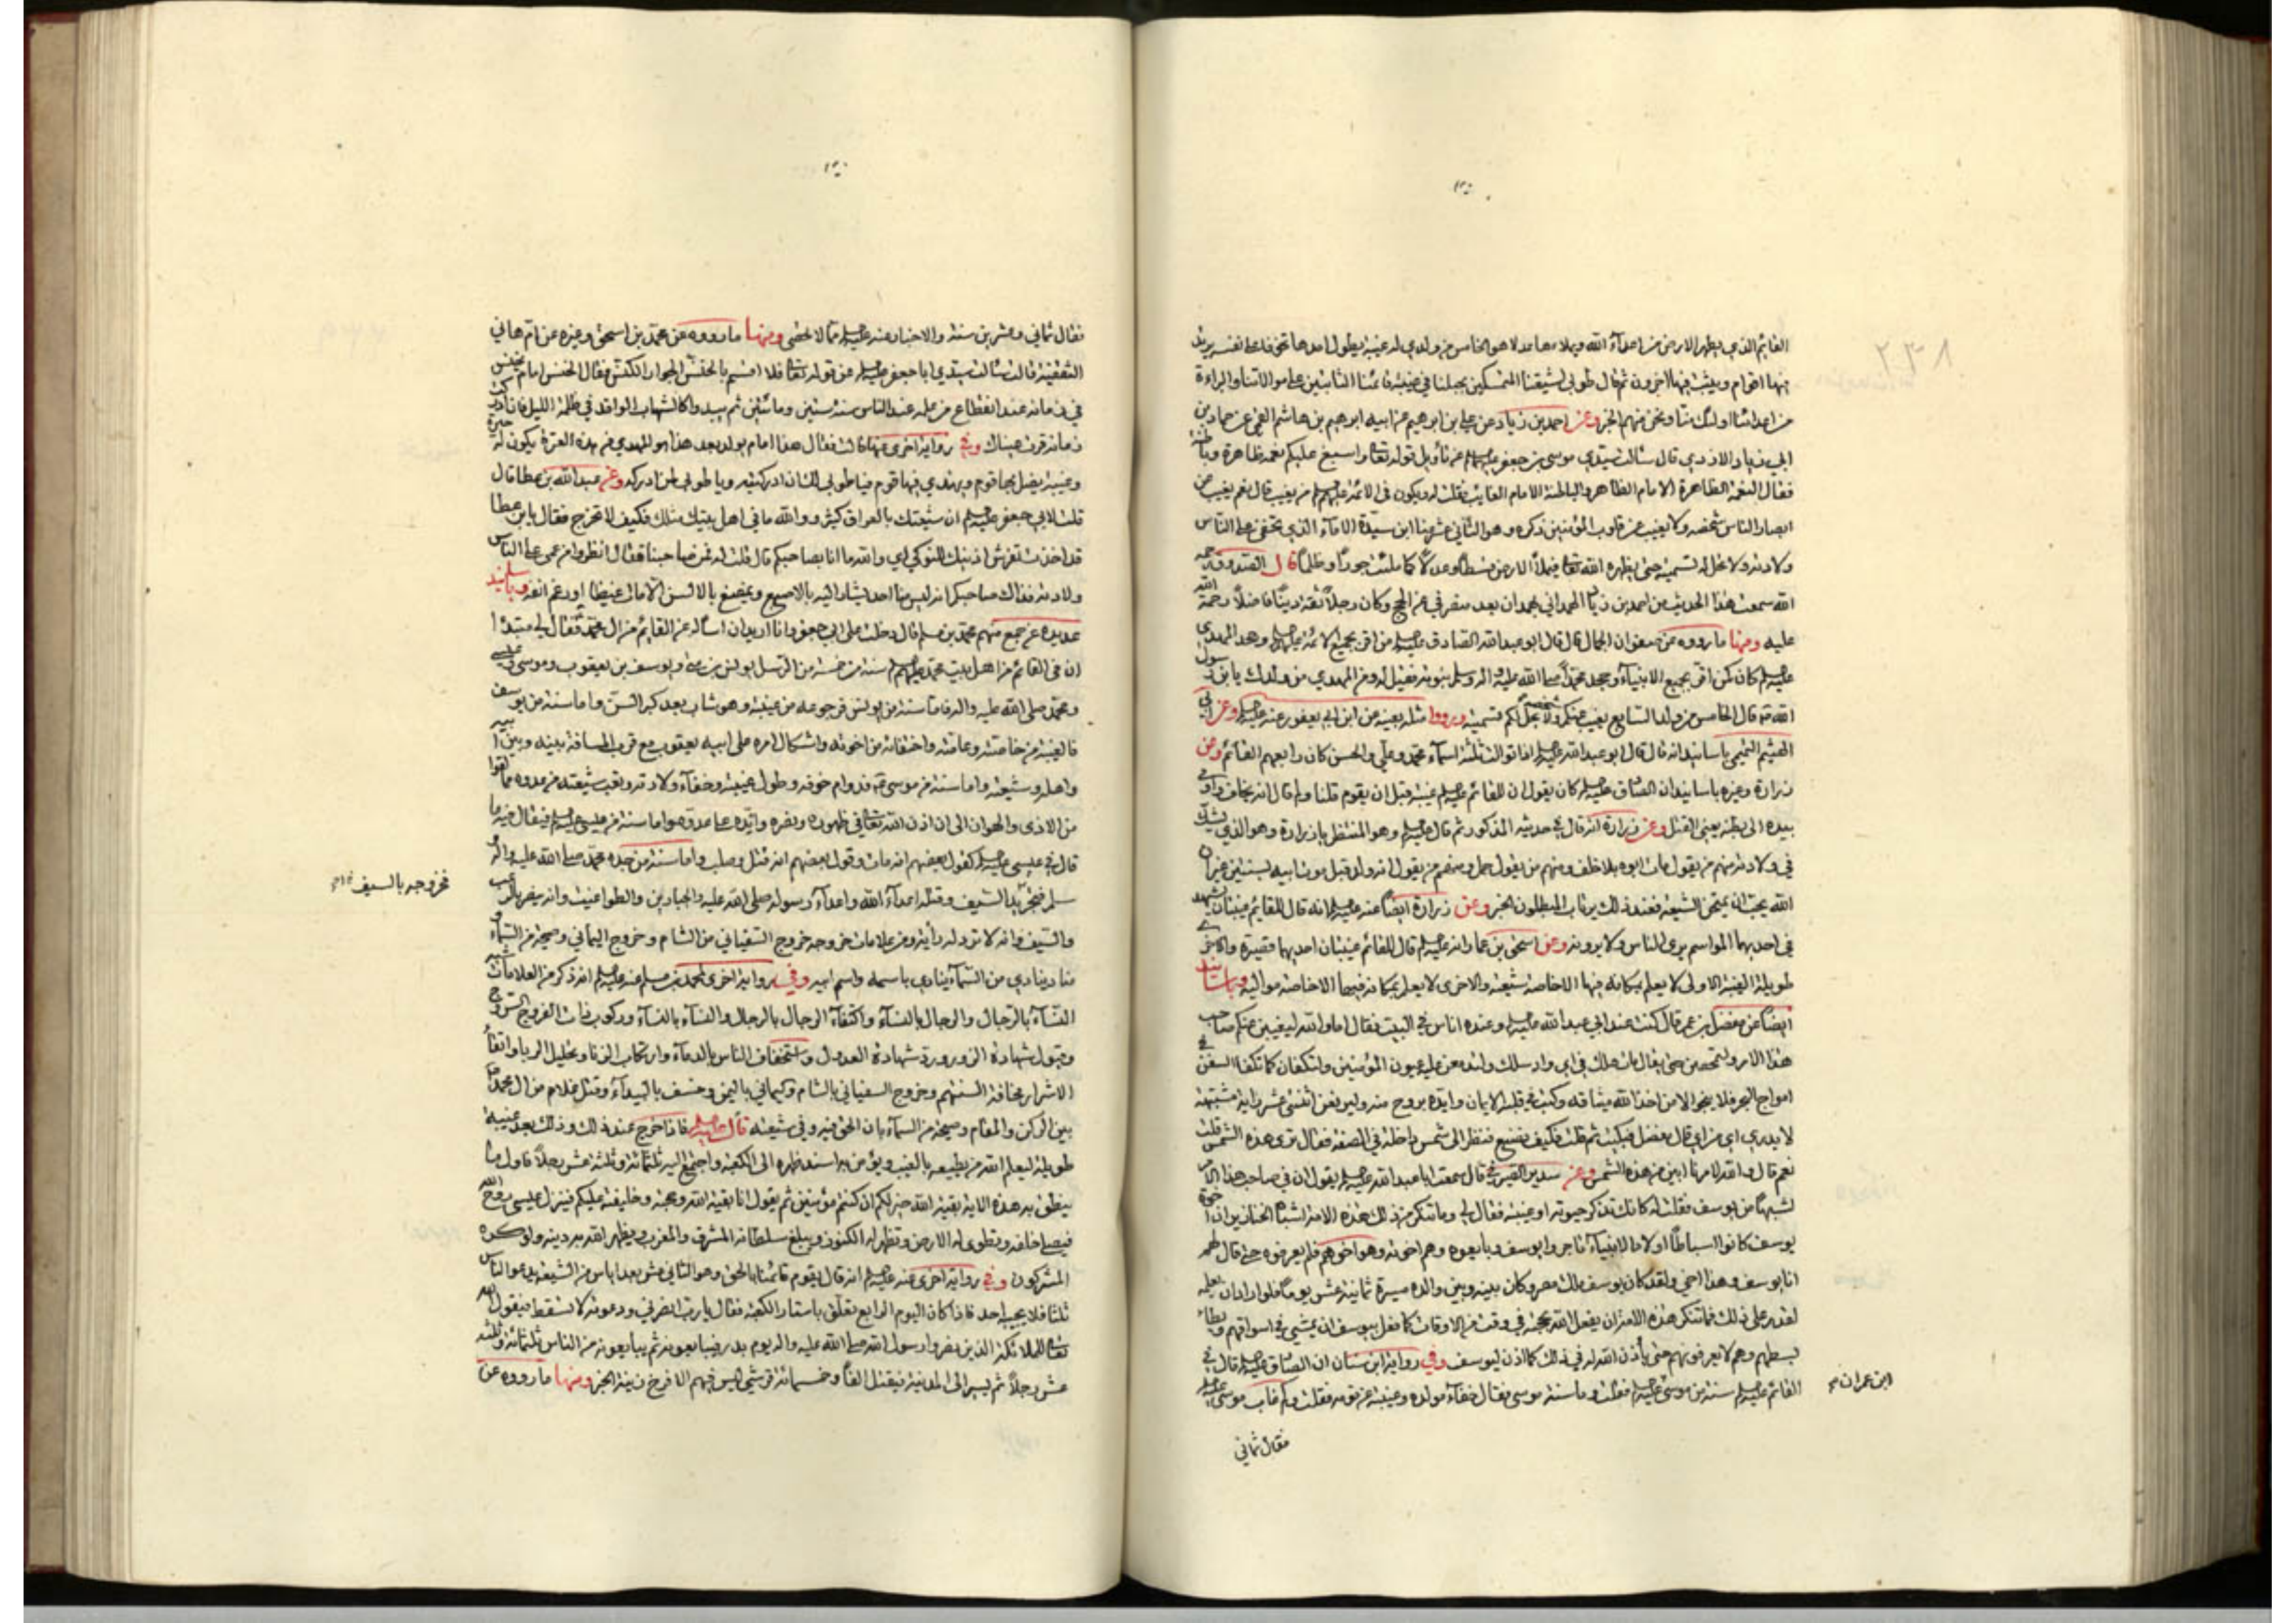 القائم الذي يطهر الارض من اعداء الله ويملاءها عدلا هو الخامس من ولدي له غيبة يطول امدها خوفا على نفسه يرتد
فيها اقوام ويثبت فيها اخرون ثم قال طوبى لشيعتنا المتمسكين بحبلنا في غيبة قائمنا الثابتين على موالاتنا والبراءة
من اعدائنا اولئك منا ونحن منهم الخبر وعن احمد بن زياد عن علي بن ابراهيم عن ابيه ابرهيم بن هاشم القمي عن حماد بن
ابي زياد الازدي قال سالت سيدي موسى بن جعفر عليهما السلام عن تأويل قوله تعالى واسبغ عليكم نعمه ظاهرة وباطنة
فقال النعمة الظاهرة الامام الظاهر والباطنة الامام الغايب فقلت له ويكون في الائمة عليهم السلام من يغيب قال نعم يغيب عن
ابصار الناس شخصه ولا يغيب عن قلوب المؤمنين ذكره وهو الثاني عشر منا ابن سيدة الاماء الذي تخفى على الناس
ولادته ولا تحل له تسميته حتى يظهره الله تعالى فيملأ الارض قسطا وعدلا كما ملئت جورا وظلما قال الصدوق رحمه
الله سمعت هذا الحديث من احمد بن زياد الهمداني بهمدان بعد منصرفي عن الحج وكان رجلا ثقة دينا فاضلا رحمة الله
عليه ومنها ما رووه عن صفوان الجمال قال قال ابو عبد الله الصادق عليه السلام من اقر بجميع الائمة عليهم السلام وجحد المهدي
عليه السلام كان كمن اقر بجميع الانبياء وجحد محمدا صلى الله عليه واله وسلم نبوته فقيل له ومن المهدي من ولدك يابن رسول
الله ص قال الخامس من ولد السابع يغيب عنكم شخصه ولا يحل لكم تسميته ورووا مثله بعينه عن ابن ابي يعفور عنه عليه السلام وعن ابي
الهيثم التميمي باسانيد انه قال قال ابو عبد الله عليه السلام اذا توالت ثلثة اسماء محمد وعلي والحسن كان رابعهم القائم وعن
زرارة وغيره باسانيد ان الصادق عليه السلام كان يقول ان للقائم عليه السلام غيبة قبل ان يقوم قلنا ولم قال انه يخاف واومى
بيده الى بطنه يعني القتل وعن زرارة انه قال في حديثه المذكور ثم قال عليه السلام وهو المنتظر يا زرارة وهو الذي يشك
في ولادته منهم من يقول مات ابوه بلا خلف ومنهم من يقول حمل ومنهم من يقول انه ولد قبل موت ابيه بسنتين غير ان
الله يحب ان يمتحن الشيعة فعند ذلك يرتاب المبطلون الخبر وعن زرارة ايضا عنه عليه السلام انه قال للقائم غيبتان يشهد
في احديهما المواسم يرى الناس ولا يرونه وعن اسحق بن عمار انه عليه السلام قال للقائم غيبتان احديهما قصيرة والاخرى
طويلة الغيبة الاولى لا يعلم بمكانه فيها الا خاصة شيعته والاخرى لا يعلم بمكانه فيها الا خاصة مواليه وباسانيد
ايضا عن مفضل بن عمر قال كنت عند ابي عبد الله عليه السلام وعنده اناس في البيت فقال اما والله ليغيبن عنكم صاحب
هذا الامر وليخملن حتى يقال مات هلك في اي واد سلك ولتدمعن عليه عيون المؤمنين ولتكفان كما تكفا السفن في
امواج البحر فلا ينجوا الا من اخذ الله ميثاقه وكتب في قلبه الايمان وايده بروح منه وليرفعن اثنتى عشر راية مشتبهة
لا يدرى اي من اي قال مفضل فبكيت ثم قلت فكيف نصنع فنظر الى شمس داخلة في الصفة فقال ترى هذه الشمس قلت
نعم قال والله لامرنا ابين من هذه الشمس وعن سدير الصيرفي قال سمعت ابا عبد الله عليه السلام يقول ان في صاحب هذا الامر
لشبها من يوسف فقلت له كانك تذكر حيوته او غيبته فقال لي وما تنكر من ذلك هذه الامة اشباه الخنازير ان اخوة
يوسف كانوا اسباطا اولاد الانبياء تاجروا بيوسف وبايعوه وهم اخوته وهو اخوهم فلم يعرفوه حتى قال لهم
انا يوسف وهذا اخي ولقد كان يوسف ملك مصر وكان بينه وبين والده مسيرة ثمانية عشر يوما فلو اراد ان يعلمه
لقدر على ذلك فما تنكر هذه الامة ان يفعل الله بحجته في وقت من الاوقات كما فعل بيوسف ان يمشي في اسواقهم ويطاء
بسطهم وهم لا يعرفونهم حتى يأذن الله له في ذلك كما اذن ليوسف وفي رواية ابن سنان ان الصادق عليه السلام قال في
القائم عليه السلام سنة من موسى عليه السلام فقلت وما سنة موسى فقال خفاء مولده وغيبته عن قومه فقلت وكم غاب موسى عليه السلام
ابن عمران
فقال ثماني
فقال ثماني وعشرين سنة والاخبار عنه عليه السلام مما لا تحصى ومنها ما رووه عن محمد بن اسحق وغيره عن ام هاني
الثقفية قالت سالت سيدي ابا جعفر عليه السلام عن قوله تعالى فلا اقسم بالخنس الجوار الكنس فقال الخنس امام يخنس
في زمانه عند انقطاع من علمه عند الناس سنة ستين ومائتين ثم يبدوا كالشهاب الواقد في ظلمة الليل فان ادركت
زمانه قرت عيناك وفي رواية اخرى عنها قالت فقال هذا امام يولد بعد هذا هو المهدي من هذه العترة يكون له حيرة
وغيبة يضل بها قوم ويهتدي فيها قوم فيا طوبى لك ان ادركتيه ويا طوبى لمن ادركه وعن عبد الله بن عطا قال
قلت لابي جعفر عليه السلام ان شيعتك بالعراق كثير ووالله ما في اهل بيتك مثلك فكيف لا تخرج فقال يابن عطا
قد اخذت تفرش اذنيك للنوكى اي والله ما انا بصاحبكم قال قلت له فمن صاحبنا فقال انظروا من عمي على الناس
ولادته فذاك صاحبكم انه ليس منا احد يشار اليه بالاصبع ويمضغ بالالسن الا مات غيظا او رغم انفه وباسانيد
عديدة عن جمع منهم محمد بن مسلم قال دخلت على ابي جعفر وانا اريد ان اساله عن القائم من ال محمد فقال لي مبتدءا
ان في القائم من اهل بيت محمد عليهم السلام سنة من خمسة من الرسل يونس بن متى ويوسف بن يعقوب وموسى وعيسى
ومحمد صلى الله عليه واله فاما سنة من يونس فرجوعه من غيبته وهو شاب بعد كبر السن واما سنة من يوسف
فالغيبة من خاصته وعامته واختفائه من اخوته واشكال امره على ابيه يعقوب مع قرب المسافة بينه وبين ابيه
واهله وشيعته واما سنة من موسى ع فدوام خوفه وطول غيبته وخفاء ولادته وتعب شيعته من عدوه مما لقوا
من الاذى والهوان الى ان اذن الله تعالى في ظهوره ونصره وايده على عدوه واما سنة من عيسى عليه السلام فيقال فيه ما
قال في عيسى عليه السلام كقول بعضهم انه مات وقول بعضهم انه قتل وصلب واما سنة من جده محمد صلى الله عليه واله و
سلم فتجريد السيف وقتله اعداء الله واعداء رسوله صلى الله عليه والجبارين والطواغيت وانه ينصر بالرعب
والسيف وانه لا ترد له راية ومن علامات خروجه خروج السفياني من الشام وخروج اليماني وصيحة من السماء و
مناد ينادي من السماء ينادي باسمه واسم ابيه وفي رواية اخرى لمحمد بن مسلم عنه عليه السلام انه ذكر من العلامات تشبه
النساء بالرجال والرجال بالنساء واكتفاء الرجال بالرجال والنساء بالنساء وركوب ذات الفروج السروج
وقبول شهادة الزور ورد شهادة العدول واستخفاف الناس بالدماء وارتكاب الزنا وتحليل الربا واتقاء
الاشرار مخافة السنتهم وخروج السفياني بالشام واليماني باليمن وخسف بالبيداء وقتل غلام من ال محمد ص
بين الركن والمقام وصيحة من السماء بان الحق فيه وفي شيعته قال عليه السلام فاذا خرج عند ذلك وذلك بعد غيبة
طويلة ليعلم الله من يطيعه بالغيب ويؤمن به اسند ظهره الى الكعبة واجتمع اليه ثلثمائة وثلثة عشر رجلا فاول ما
ينطق به هذه الاية بقية الله خير لكم ان كنتم مؤمنين ثم يقول انا بقية الله وحجته وخليفته عليكم فينزل عيسى روح الله
فيصلي خلفه وتطوى له الارض وتظهر له الكنوز ويبلغ سلطانه المشرق والمغرب ويظهر الله به دينه ولو كره
المشركون وفي رواية اخرى عنه عليه السلام انه قال يقوم قائمنا بالحق وهو الثاني عشر بعد اياس من الشيعة يدعو الناس
ثلثا فلا يجيبه احد فاذا كان اليوم الرابع تعلق باستار الكعبة فقال يا رب انصرني ودعوته لا تسقط فيقول الله
تعالى للملائكة الذين نصروا رسول الله صلى الله عليه واله يوم بدر فيبايعونه ثم يبايعونه من الناس ثلثمائة وثلثة
عشر رجلا ثم يسير الى المدينة فيقتل الفا وخمسمائة قرشي ليس فيهم الا فرخ زنية الخبر ومنها ما رووه عن
فخروجه بالسيف